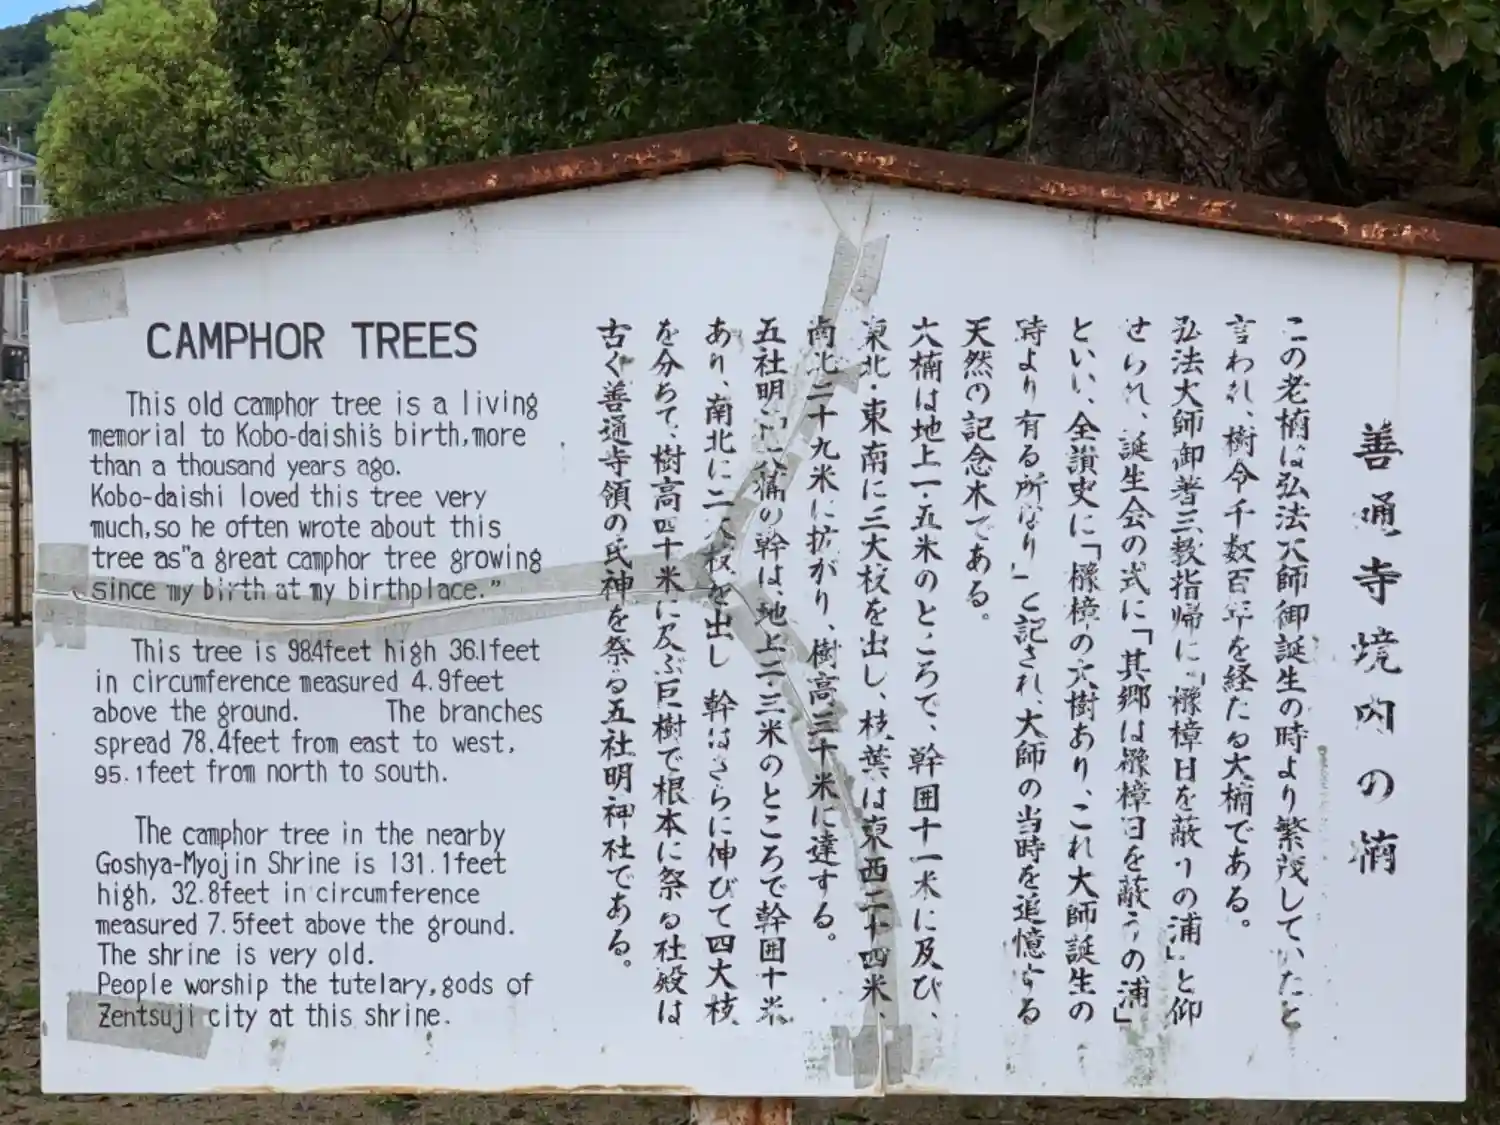 CAMPHOR TREES
This old camphor tree is a living
memorial to Kobo-daishi's birth, more
than a thousand years ago.
Kobo-daishi loved this tree very
much, so he often wrote about this
tree as "a great camphor tree growing
since my birth at my birthplace."
This tree is 98.4feet high 36.1feet
in circumference measured 4.9feet
above the ground. The branches
spread 78.4feet from east to west,
95.1feet from north to south.
The camphor tree in the nearby
Goshya-Myojin Shrine is 131.1feet
high, 32.8feet in circumference
measured 7.5feet above the ground.
The shrine is very old.
People worship the tutelary, gods of
Zentsuji city at this shrine.
善通寺境内の楠
この老楠は弘法大師御誕生の時より繁茂していたと
言われ、樹令千数百年を経たる大楠である。
弘法大師御著三教指帰に「櫲樟日を蔽うの浦」と仰
せられ、誕生会の式に「其郷は櫲樟日を蔽うの浦」
といい、全讃史に「櫲樟の大樹あり、これ大師誕生の
時より有る所なり」と記され、大師の当時を追憶する
天然の記念木である。
大楠は地上一・五米のところで、幹囲十一米に及び、
東北・東南に三大枝を出し、枝葉は東西二十四米、
南北二十九米に拡がり、樹高三十米に達する。
五社明神大楠の幹は、地上二・三米のところで幹囲十米
あり、南北に二大枝を出し 幹はさらに伸びて四大枝
を分ちて、樹高四十米に及ぶ巨樹で根本に祭る社殿は
古く善通寺領の氏神を祭る五社明神社である。